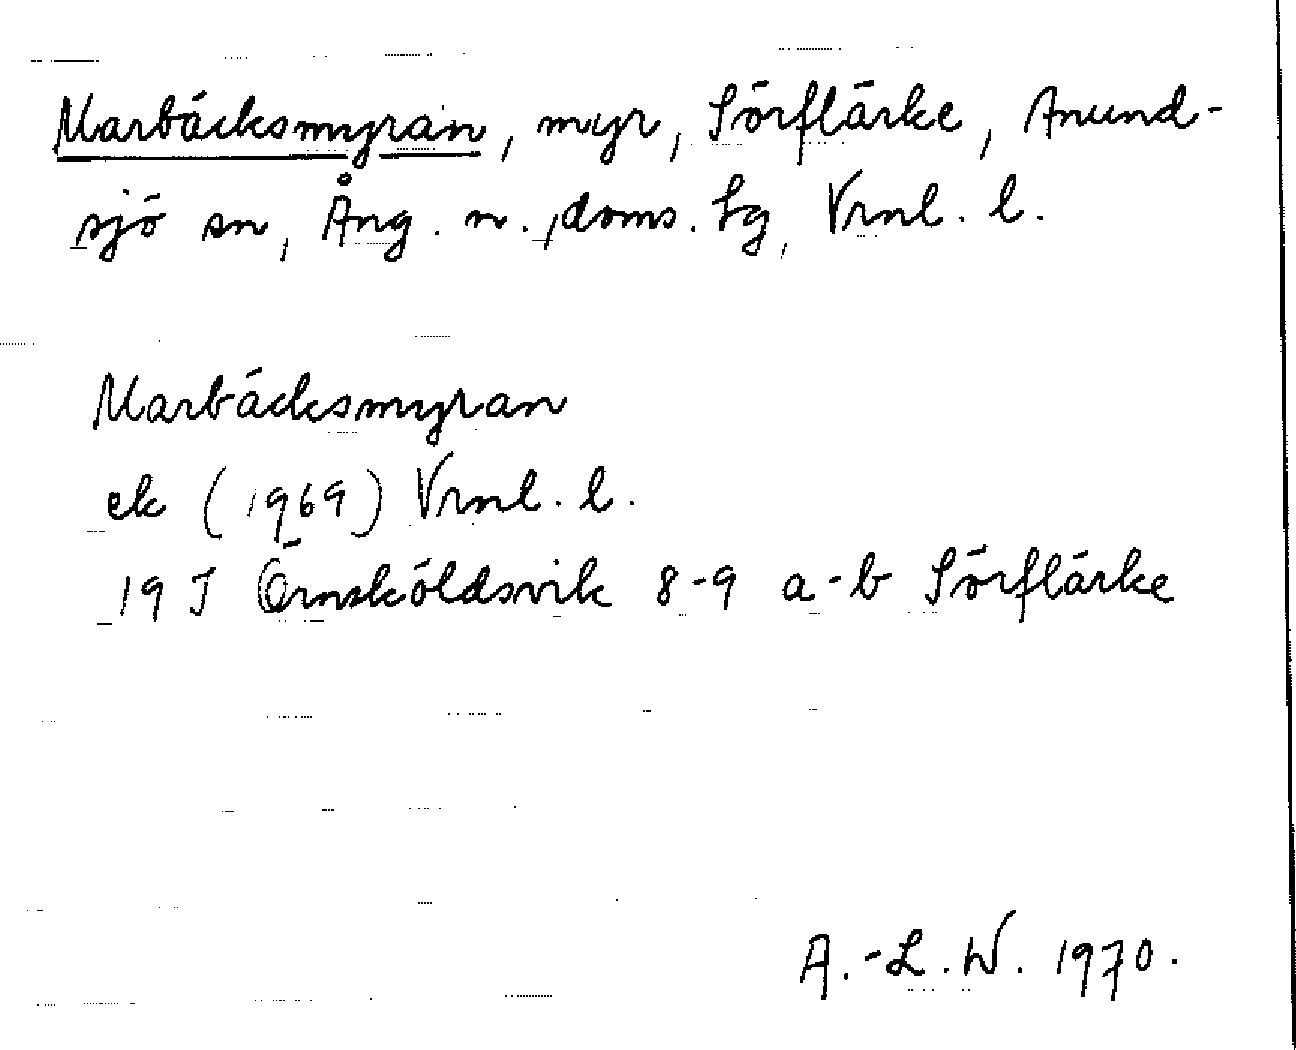 Marbäcksmyran, myr, Sörflärke, Anund-
sjö sn, Ång. n., doms. lg, Vrnl. l.
Marbäcksmyran
ek (1969) Vrnl. l.
19 J Örnsköldsvik 8-9 a-b Sörflärke
A.-L. W. 1970.